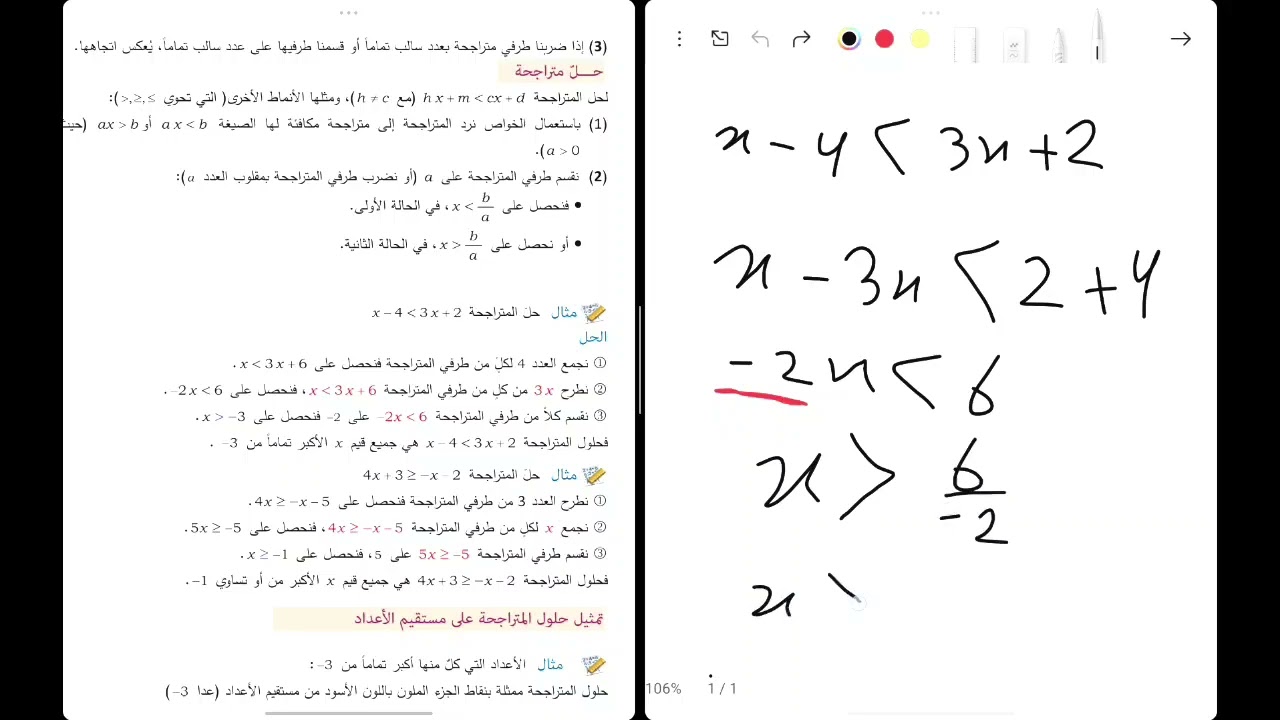 (3) إذا ضربنا طرفي متراجحة بعدد سالب تماماً أو قسمنا طرفيها على عدد سالب تماماً، يُعكس اتجاهها.
حـــلّ متراجحة
لحل المتراجحة h x + m < cx + d (مع h ≠ c)، ومثلها الأنماط الأخرى( التي تحوي >,≥,≤):
(1) باستعمال الخواص نرد المتراجحة إلى متراجحة مكافئة لها الصيغة a x < b أو ax > b (حيث
a > 0).
(2) نقسم طرفي المتراجحة على a (أو نضرب طرفي المتراجحة بمقلوب العدد a):
• فنحصل على x < b/a، في الحالة الأولى.
• أو نحصل على x > b/a، في الحالة الثانية.
مثال حلّ المتراجحة x − 4 < 3x + 2
الحل
① نجمع العدد 4 لكلٍ من طرفي المتراجحة فنحصل على x < 3x + 6.
② نطرح 3x من كلٍ من طرفي المتراجحة x < 3x + 6، فنحصل على −2x < 6.
③ نقسم كلاً من طرفي المتراجحة −2x < 6 على −2 فنحصل على x > −3.
فحلول المتراجحة x − 4 < 3x + 2 هي جميع قيم x الأكبر تماماً من −3 .
مثال حلّ المتراجحة 4x + 3 ≥ −x − 2
① نطرح العدد 3 من طرفي المتراجحة فنحصل على 4x ≥ −x − 5.
② نجمع x لكلٍ من طرفي المتراجحة 4x ≥ −x − 5، فنحصل على 5x ≥ −5.
③ نقسم طرفي المتراجحة 5x ≥ −5 على 5، فنحصل على x ≥ −1.
فحلول المتراجحة 4x + 3 ≥ −x − 2 هي جميع قيم x الأكبر من أو تساوي −1.
تمثيل حلول المتراجحة على مستقيم الأعداد
مثال الأعداد التي كلٌ منها أكبر تماماً من −3:
حلول المتراجحة ممثلة بنقاط الجزء الملون باللون الأسود من مستقيم الأعداد (عدا −3)
x − 4 < 3x + 2
x − 3x < 2 + 4
−2x < 6
x > 6/−2
x >
106% 1 / 1